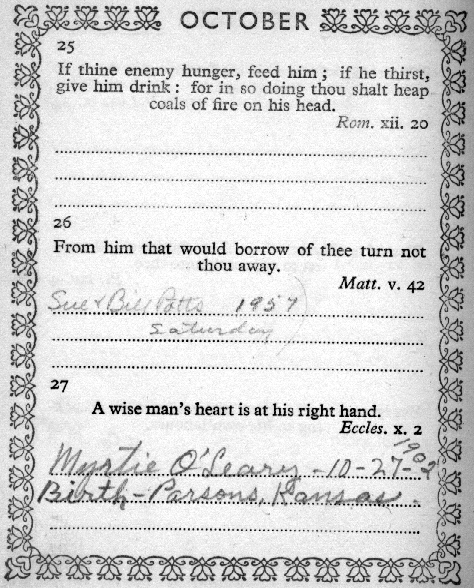 OCTOBER
25
If thine enemy hunger, feed him; if he thirst,
give him drink: for in so doing thou shalt heap
coals of fire on his head.
Rom. xii. 20
26
From him that would borrow of thee turn not
thou away.
Matt. v. 42
Sue & Bill Potts 1957
Saturday
27
A wise man's heart is at his right hand.
Eccles. x. 2
Myrtie O'Leary - 10-27-1902
Birth-Parsons, Kansas.